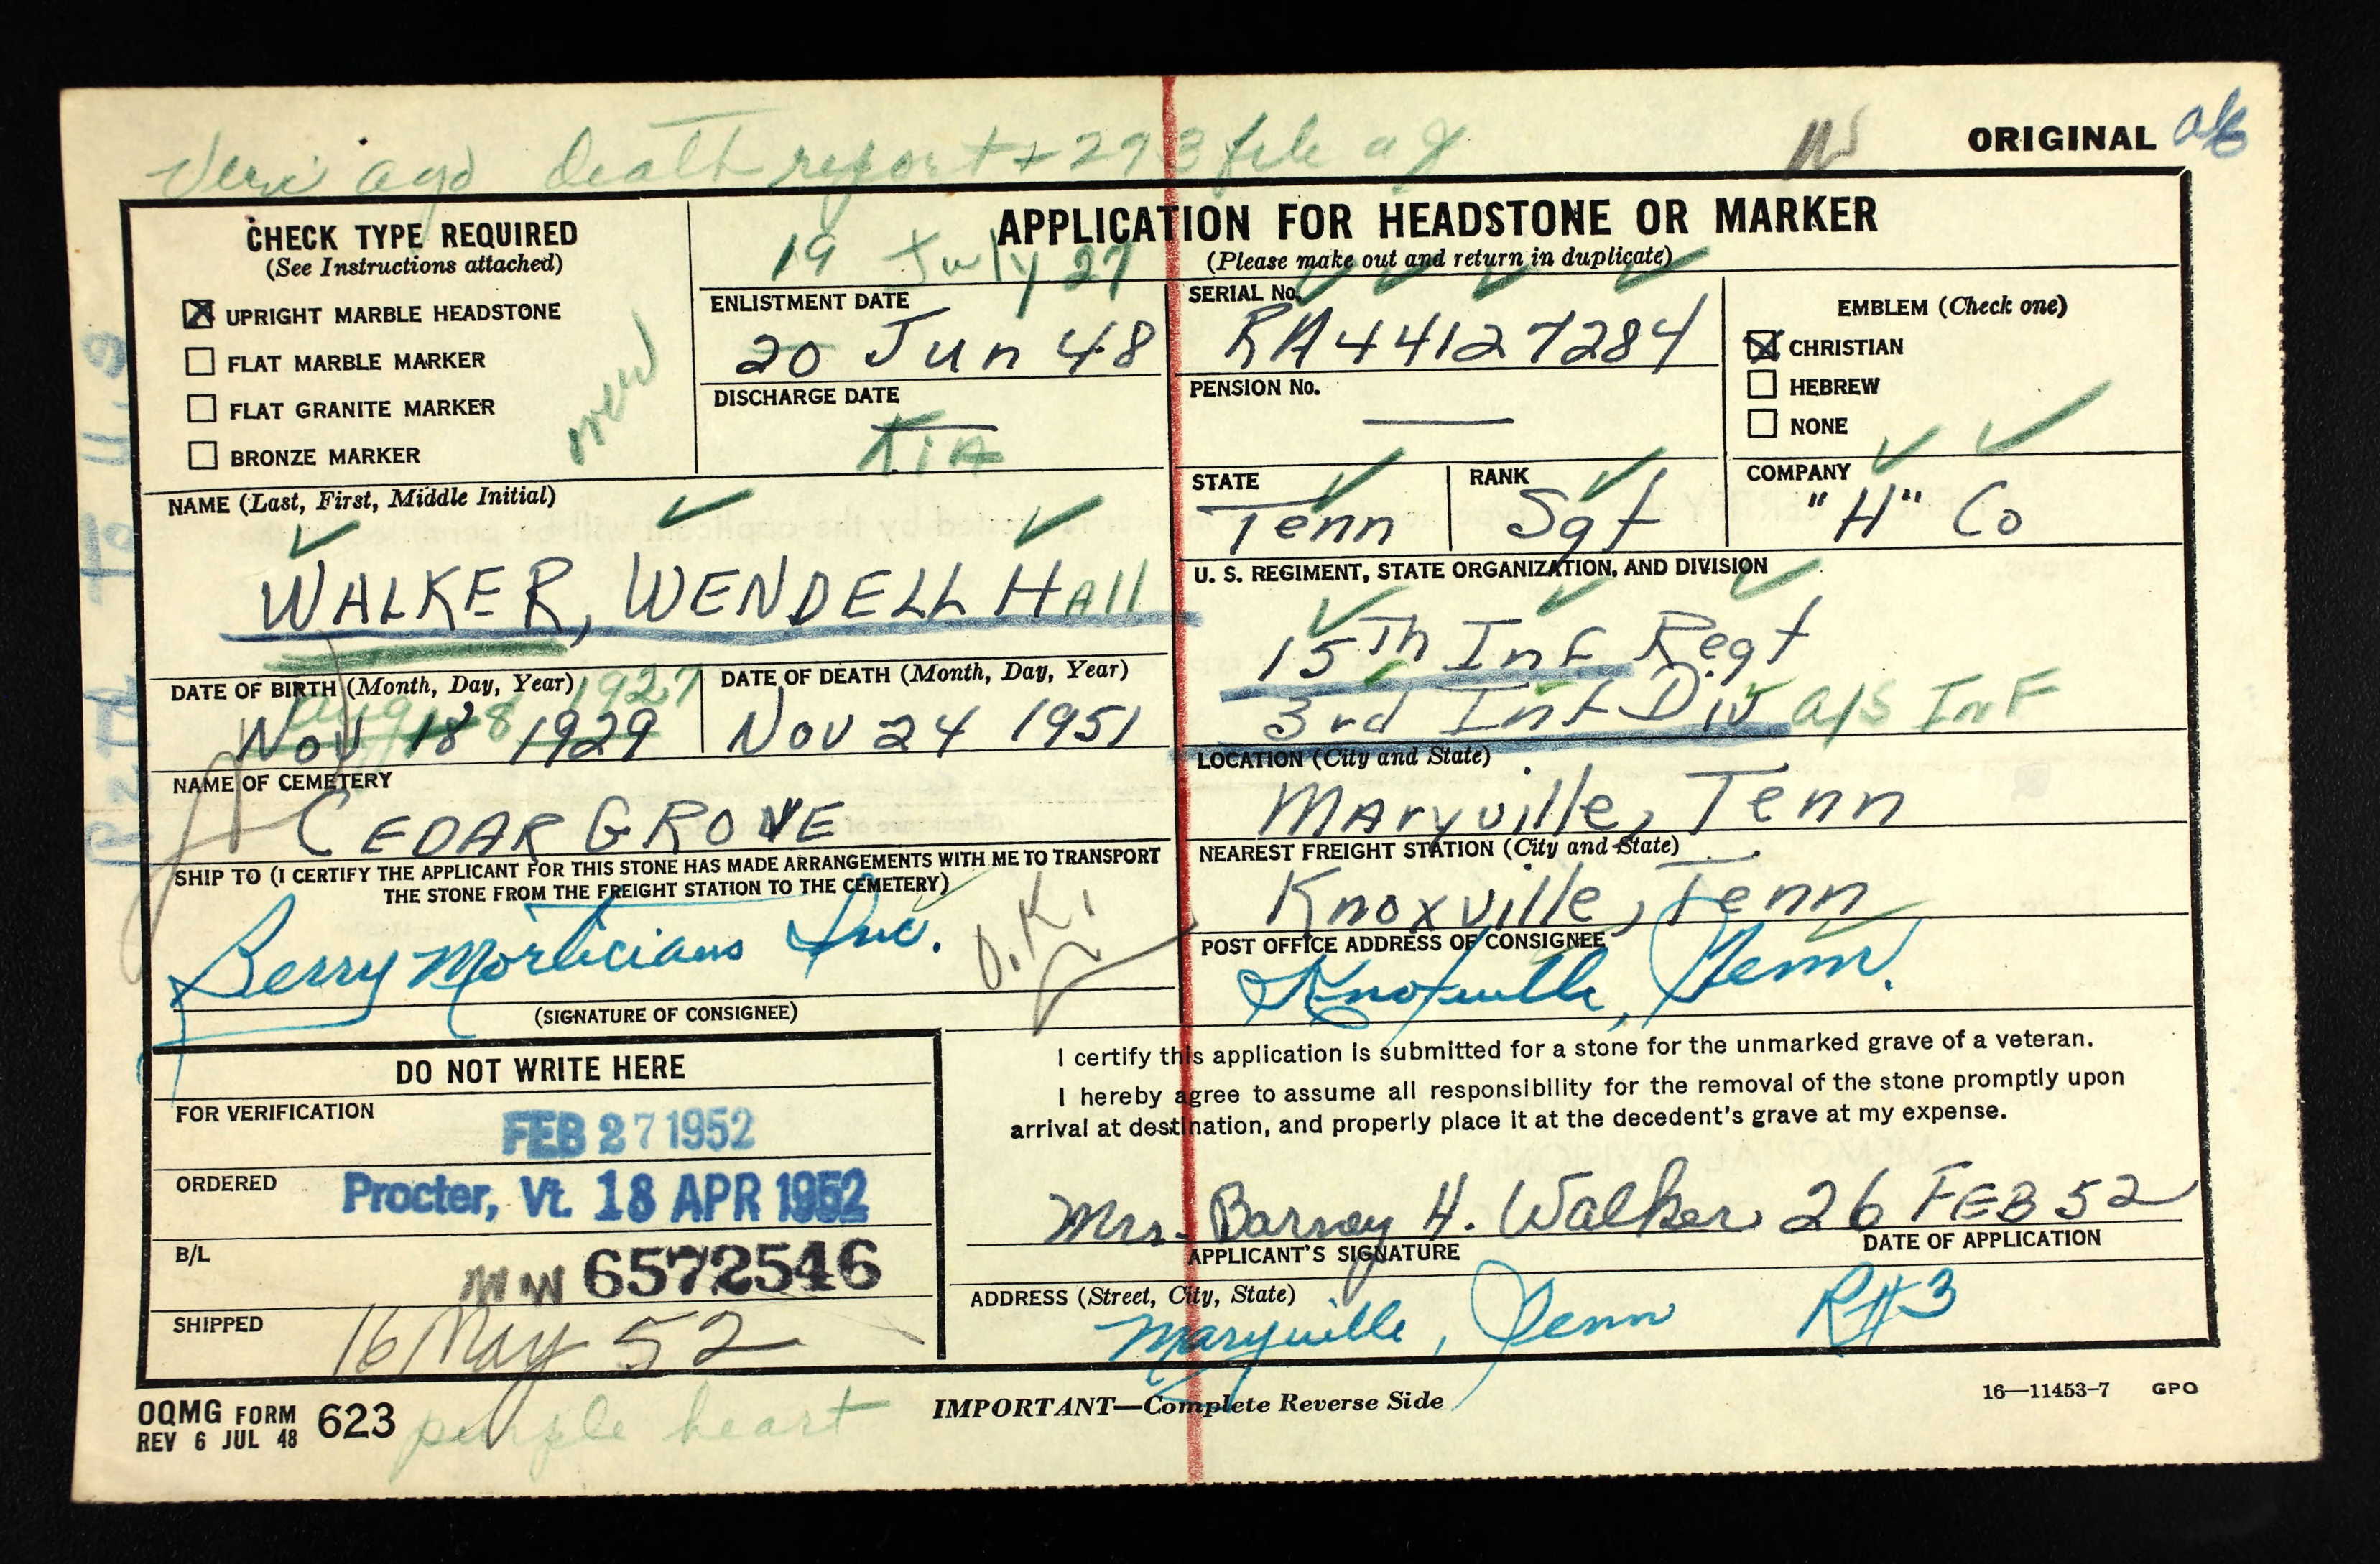 death report + 293 file ag
ORIGINAL
CHECK TYPE REQUIRED
(See Instructions attached)
UPRIGHT MARBLE HEADSTONE
FLAT MARBLE MARKER
FLAT GRANITE MARKER
BRONZE MARKER
new
APPLICATION FOR HEADSTONE OR MARKER
(Please make out and return in duplicate)
19 July 27
ENLISTMENT DATE
20 Jun 48
DISCHARGE DATE
KIA
SERIAL No.
RA44127284
PENSION No.
EMBLEM (Check one)
CHRISTIAN
HEBREW
NONE
STATE
Tenn
RANK
Sgt
COMPANY
"H" Co
NAME (Last, First, Middle Initial)
WALKER, WENDELL HAll
U. S. REGIMENT, STATE ORGANIZATION, AND DIVISION
15Th Inf Regt
3rd Inf Div a/s InF
DATE OF BIRTH (Month, Day, Year)
Aug 8 1927
Nov 18 1929
DATE OF DEATH (Month, Day, Year)
Nov 24 1951
NAME OF CEMETERY
CEDAR GROVE
LOCATION (City and State)
Maryville, Tenn
SHIP TO (I CERTIFY THE APPLICANT FOR THIS STONE HAS MADE ARRANGEMENTS WITH ME TO TRANSPORT
THE STONE FROM THE FREIGHT STATION TO THE CEMETERY)
Berry Morticians Inc.
O.K.
(SIGNATURE OF CONSIGNEE)
NEAREST FREIGHT STATION (City and State)
Knoxville, Tenn
POST OFFICE ADDRESS OF CONSIGNEE
Knoxville, Tenn.
DO NOT WRITE HERE
FOR VERIFICATION
FEB 27 1952
ORDERED
Procter, Vt. 18 APR 1952
B/L
WW 6572546
SHIPPED
16 May 52
I certify this application is submitted for a stone for the unmarked grave of a veteran.
I hereby agree to assume all responsibility for the removal of the stone promptly upon
arrival at destination, and properly place it at the decedent's grave at my expense.
Mrs. Barney H. Walker 26 FEB 52
APPLICANT'S SIGNATURE
DATE OF APPLICATION
ADDRESS (Street, City, State)
Maryville, Tenn R#3
OQMG FORM 623
REV 6 JUL 48
purple heart
IMPORTANT—Complete Reverse Side
16—11453-7 GPO